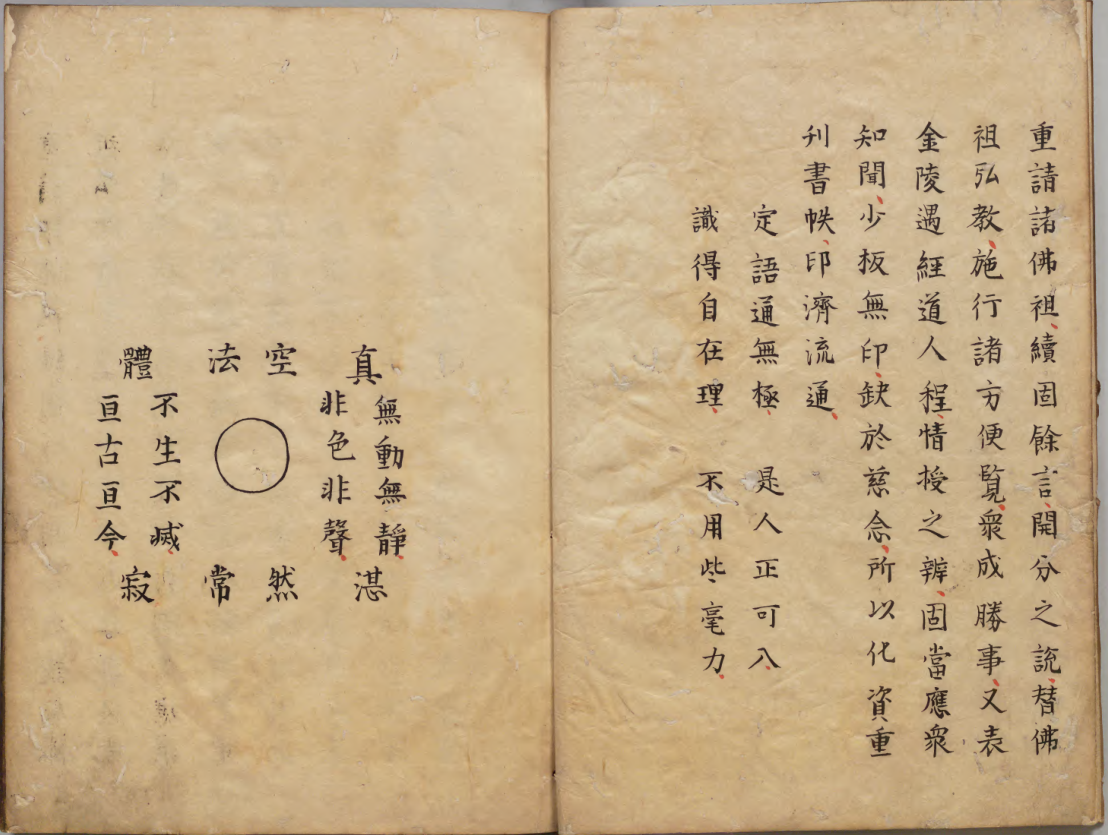 重請諸佛祖、續固餘言、開分之説、替佛
祖弘教、施行諸方便覧、衆成勝事、又表
金陵遇經道人、程情授之辨、固當應衆
知聞、少板無印、缺於慈念、所以化資重
刋書帙、印濟流通、
定語通無極、 是人正可入
識得自在理、 不用些毫力、
真 空 法 體
無動無靜、
非色非聲、
不生不滅、
亘古亘今、
湛 然 常 寂